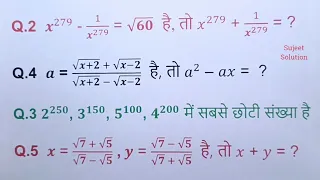 Q.2 x^279 - 1/x^279 = √60 है, तो x^279 + 1/x^279 = ?
Sujeet
Solution
Q.4 a = (√x+2 + √x−2)/(√x+2 − √x−2) है, तो a² − ax = ?
Q.3 2^250, 3^150, 5^100, 4^200 में सबसे छोटी संख्या है
Q.5 x = (√7 + √5)/(√7 − √5) , y = (√7 − √5)/(√7 + √5) है, तो x + y = ?